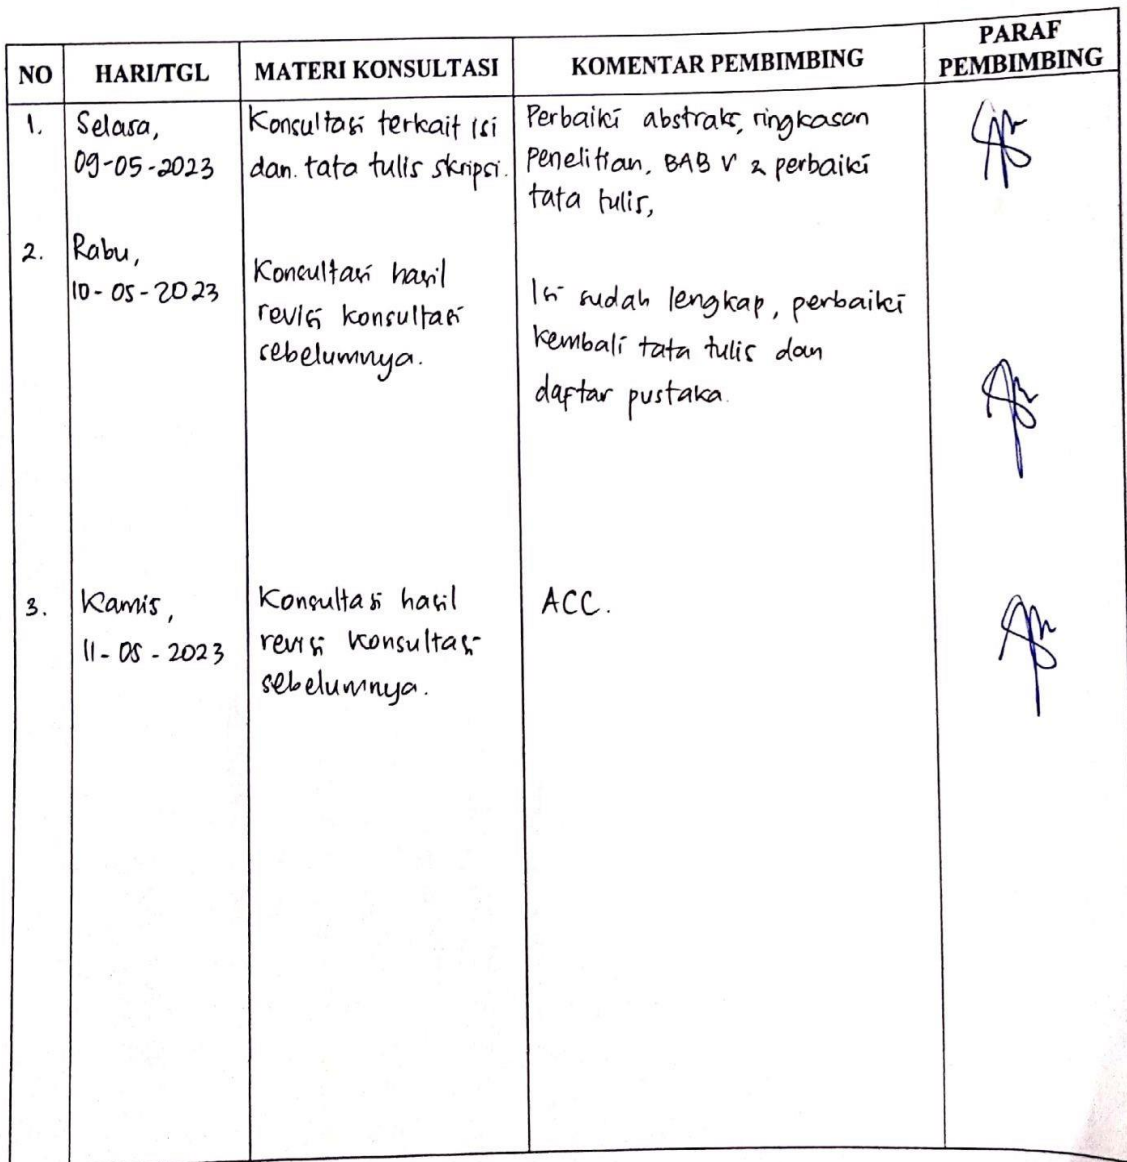 NO HARI/TGL MATERI KONSULTASI KOMENTAR PEMBIMBING PARAF PEMBIMBING
1.
Selasa,
09-05-2023
Konsultasi terkait isi
dan. tata tulis skripsi.
Perbaiki abstrak, ringkasan
Penelitian, BAB V & perbaiki
tata tulis,
2.
Rabu,
10-05-2023
Konsultasi hasil
revisi konsultasi
sebelumnya.
Isi sudah lengkap, perbaiki
kembali tata tulis dan
daftar pustaka.
3.
Kamis,
11-05-2023
Konsultasi hasil
revisi konsultasi
sebelumnya.
ACC.